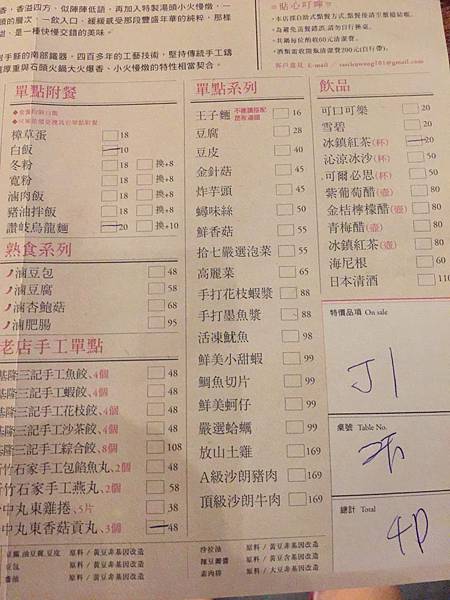 香，香溢四方，似陣陣低語，再加入特製湯頭小火慢燉，
頭的層次，一飲入口，緩緩感受那段豐盛年華的純粹，那樣
甜，是一種快慢交錯的美味。
岩手縣的南部鐵器，四百多年的工藝技術，堅持傳統手工鑄
厚重與石頭火鍋大火爆香、小火慢燉的特性相當契合。
貼心叮嚀
客戶意見 E-mail
單點附餐
樟草蛋 18
白飯 10
冬粉 18 換+8
寬粉 18 換+8
滷肉飯 18 換+8
豬油拌飯 18 換+8
讚岐烏龍麵 20 換+10
熟食系列
滷豆包 48
滷豆腐 58
滷杏鮑菇 68
滷肥腸 95
老店手工單點
基隆三記手工魚餃、4個 48
基隆三記手工蝦餃、4個 48
基隆三記手工花枝餃、4個 48
基隆三記手工沙茶餃、4個 48
基隆三記手工綜合餃、8個 108
新竹石家手工包餡魚丸、2個 48
新竹石家手工燕丸、2個 58
中丸東雞捲、5片 38
中丸東香菇貢丸、3個 48
單點系列
王子麵 不建議搭配昆布湯頭 16
豆腐 28
豆皮 40
金針菇 45
炸芋頭 45
蟳味絲 50
鮮香菇 55
拾七嚴選泡菜 55
高麗菜 65
手打花枝蝦漿 88
手打墨魚漿 88
活凍魷魚 98
鮮美小甜蝦 99
鯛魚切片 99
鮮美蚵仔 99
嚴選蛤蠣 99
放山土雞 169
A級沙朗豬肉 169
頂級沙朗牛肉 169
飲品
可口可樂 20
雪碧 20
冰鎮紅茶(杯) 20
沁涼冰沙(杯) 50
可爾必思(杯) 50
紫葡萄醋(壺) 80
金桔檸檬醋(壺) 80
青梅醋(壺) 80
冰鎮紅茶(壺) 80
海尼根 60
日本清酒 110
特價品項 On sale
J1
桌號 Table No.
總計 Total
原料 / 黃豆非基因改造
原料 / 黃豆非基因改造
原料 / 黃豆非基因改造
沙拉油 原料 / 黃豆非基因改造
辣豆瓣醬 原料 / 黃豆含基因改造
素肉排 原料 / 大豆非基因改造